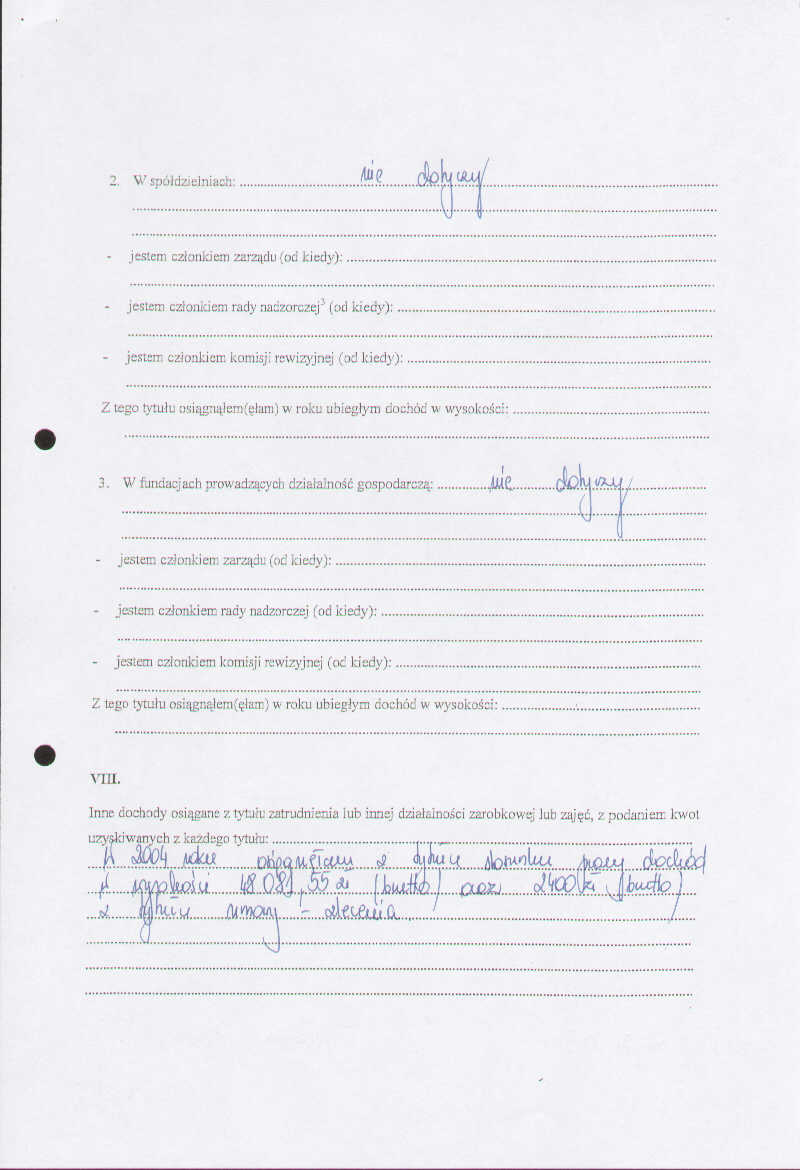 2. W spółdzielniach: nie dotyczy
- jestem członkiem zarządu (od kiedy):
- jestem członkiem rady nadzorczej³ (od kiedy):
- jestem członkiem komisji rewizyjnej (od kiedy):
Z tego tytułu osiągnąłem(ęłam) w roku ubiegłym dochód w wysokości:
3. W fundacjach prowadzących działalność gospodarczą: nie dotyczy
- jestem członkiem zarządu (od kiedy):
- jestem członkiem rady nadzorczej (od kiedy):
- jestem członkiem komisji rewizyjnej (od kiedy):
Z tego tytułu osiągnąłem(ęłam) w roku ubiegłym dochód w wysokości:
VIII.
Inne dochody osiągane z tytułu zatrudnienia lub innej działalności zarobkowej lub zajęć, z podaniem kwot
uzyskiwanych z każdego tytułu:
W 2004 roku osiągnęłam z tytułu stosunku pracy dochód
w wysokości 48 081,55 zł (brutto) oraz 2400 zł (brutto)
z tytułu umowy - zlecenia.